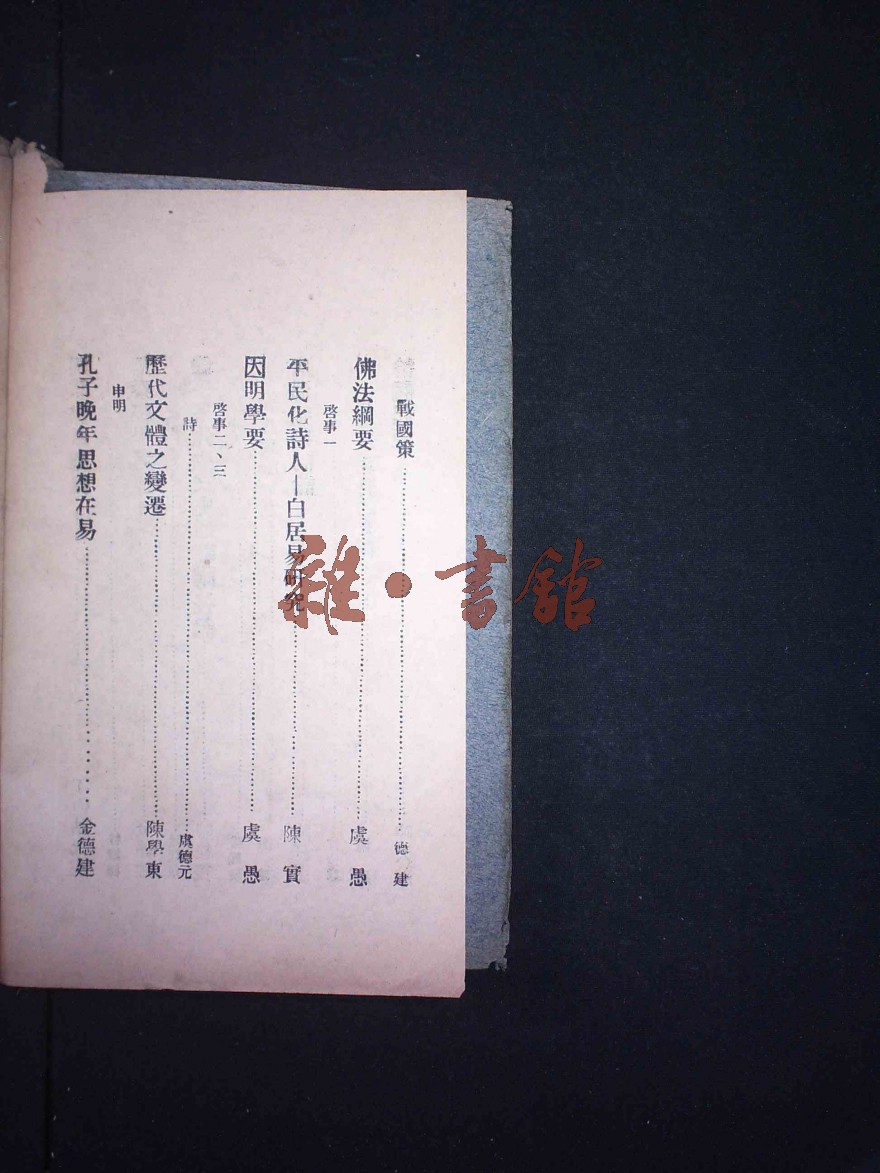 戰國策……德建
佛法綱要……虞愚
啓事一
平民化詩人—白居易研究……陳實
因明學要……虞愚
啓事二、三
詩……虞德元
歷代文體之變遷……陳學東
申明
孔子晚年思想在易……金德建
雜·書館